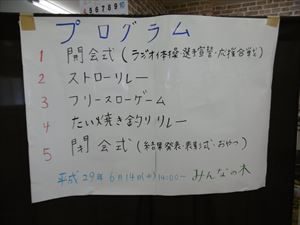 5 6 7 8 9 10
プログラム
1 開会式(ラジオ体操・選手宣誓・応援合戦)
2 ストローリレー
3 フリースローゲーム
4 たい焼き釣りリレー
5 閉会式(結果発表・表彰式・おやつ)
平成29年6月14日(水)14:00~ みんなの木